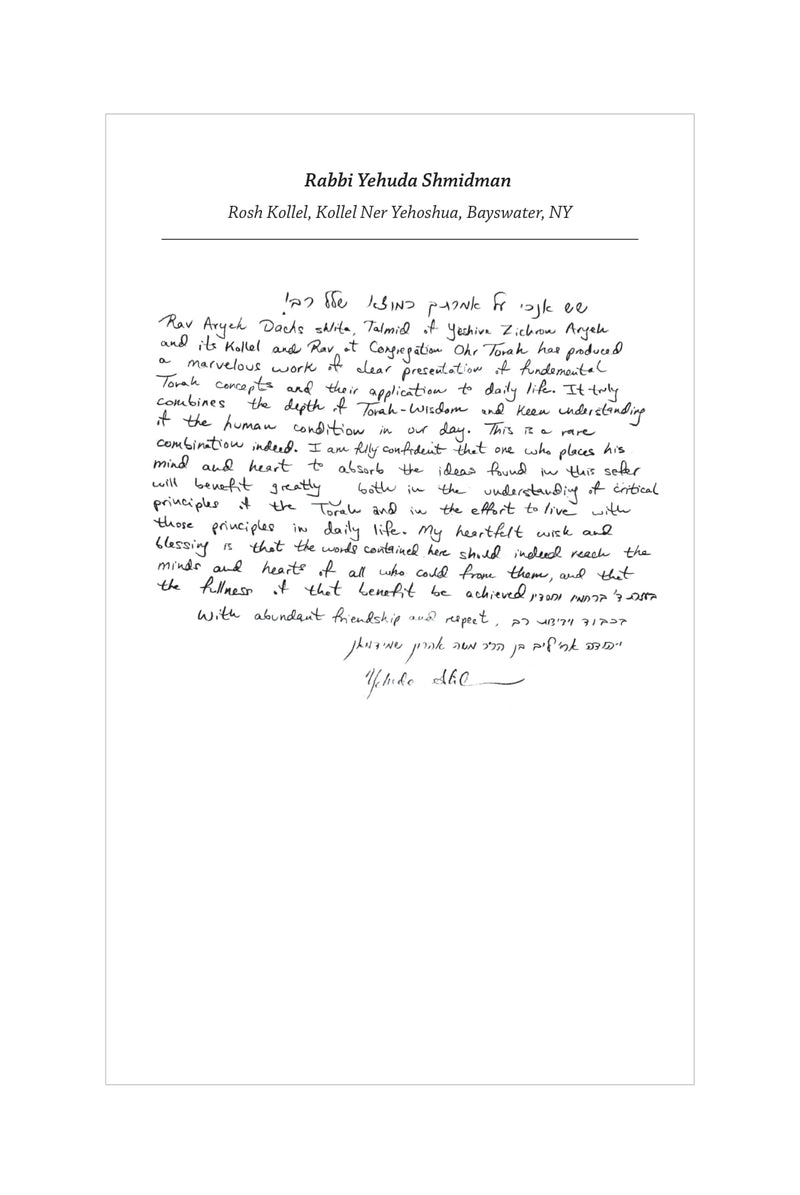 Rabbi Yehuda Shmidman
Rosh Kollel, Kollel Ner Yehoshua, Bayswater, NY
שש אנכי על אמרתך כמוצא שלל רב!
Rav Aryeh Dachs shlita, Talmid of Yeshiva Zichron Aryeh
and its Kollel and Rav at Congregation Ohr Torah has produced
a marvelous work of clear presentation of fundemental
Torah concepts and their application to daily life. It truly
combines the depth of Torah-Wisdom and keen understanding
of the human condition in our day. This is a rare
combination indeed. I am fully confident that one who places his
mind and heart to absorb the ideas found in this sefer
will benefit greatly both in the understanding of critical
principles of the Torah and in the effort to live with
those principles in daily life. My heartfelt wish and
blessing is that the words contained here should indeed reach the
minds and hearts of all who could from them, and that
the fullness of that benefit be achieved בעזרת ד' ברחמיו וחסדיו
With abundant friendship and respect, בכבוד וידידות רב
יהודה ארי' לייב בן הר"ר משה אהרון שמידמאן
Yehuda